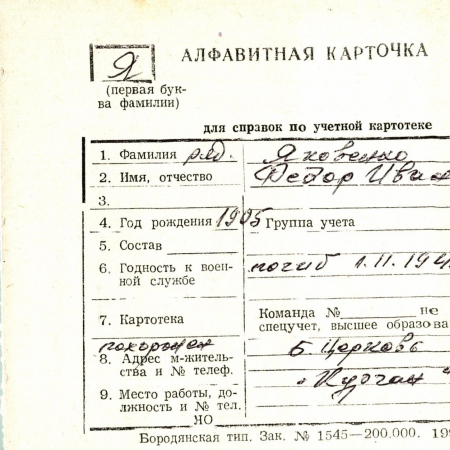 Я
АЛФАВИТНАЯ КАРТОЧКА
(первая бук-
ва фамилии)
для справок по учетной картотеке
1. Фамилия ряд. Яковенко
2. Имя, отчество Федор Ива
3.
4. Год рождения 1905 Группа учета
5. Состав
6. Годность к воен-
ной службе погиб 1.11.194
7. Картотека Команда № не
спецучет, высшее образова
похоронен Б. Церковь
8. Адрес м-житель-
ства и № телеф. "Курган"
9. Место работы, до-
лжность и № тел.
НО
Бородянская тип. Зак. № 1545—200.000. 19